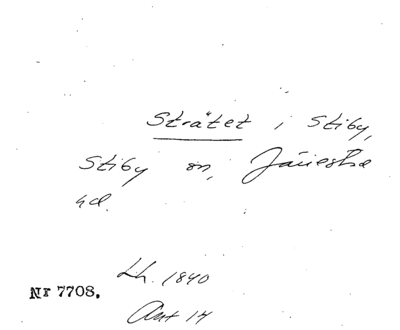 Stråtet i Stiby,
Stiby sn, Järrestad
hd.
Lh. 1840
Nr 7708.
Akt 14